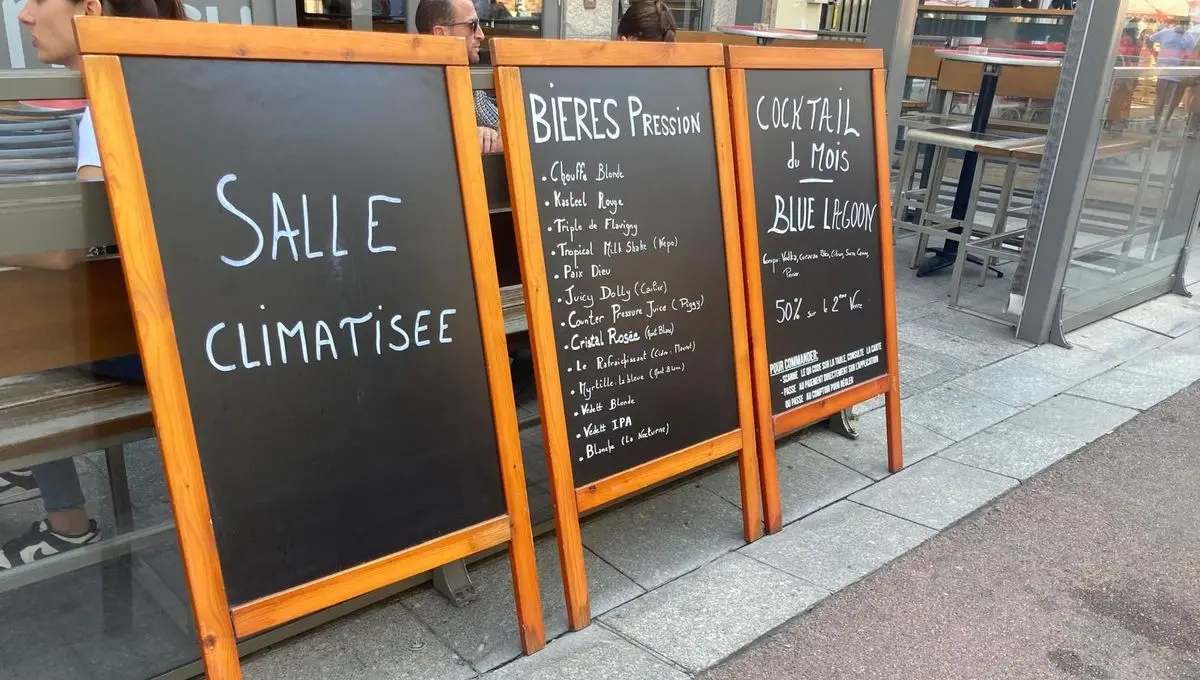 SALLE
CLIMATISEE
BIERES PRESSION
• Chouffe Blonde
• Kasteel Rouge
• Triple de Flavigny
• Tropical Milk Shake (Nepo)
• Paix Dieu
• Juicy Dolly (Cartier)
• Counter Pressure Juice (Piggy)
• Cristal Rosée (Mont Blanc)
• Le Rafraichissant (Cidre: Mauret)
• Myrtille: La bleue (Mont Blanc)
• Vedett Blonde
• Vedett IPA
• Blanche (La Nocturne)
COCKTAIL
du MOIS
BLUE LAGOON
Compo: Vodka, Curacao Bleu, Citron, Sucre Canne,
50% sur le 2ème Verre
POUR COMMANDER:
- SCANNE LE QR CODE SUR LA TABLE, CONSULTE LA CARTE
- PASSE AU PAIEMENT DIRECTEMENT SUR L'APPLICATION
OU PASSE AU COMPTOIR POUR RÉGLER